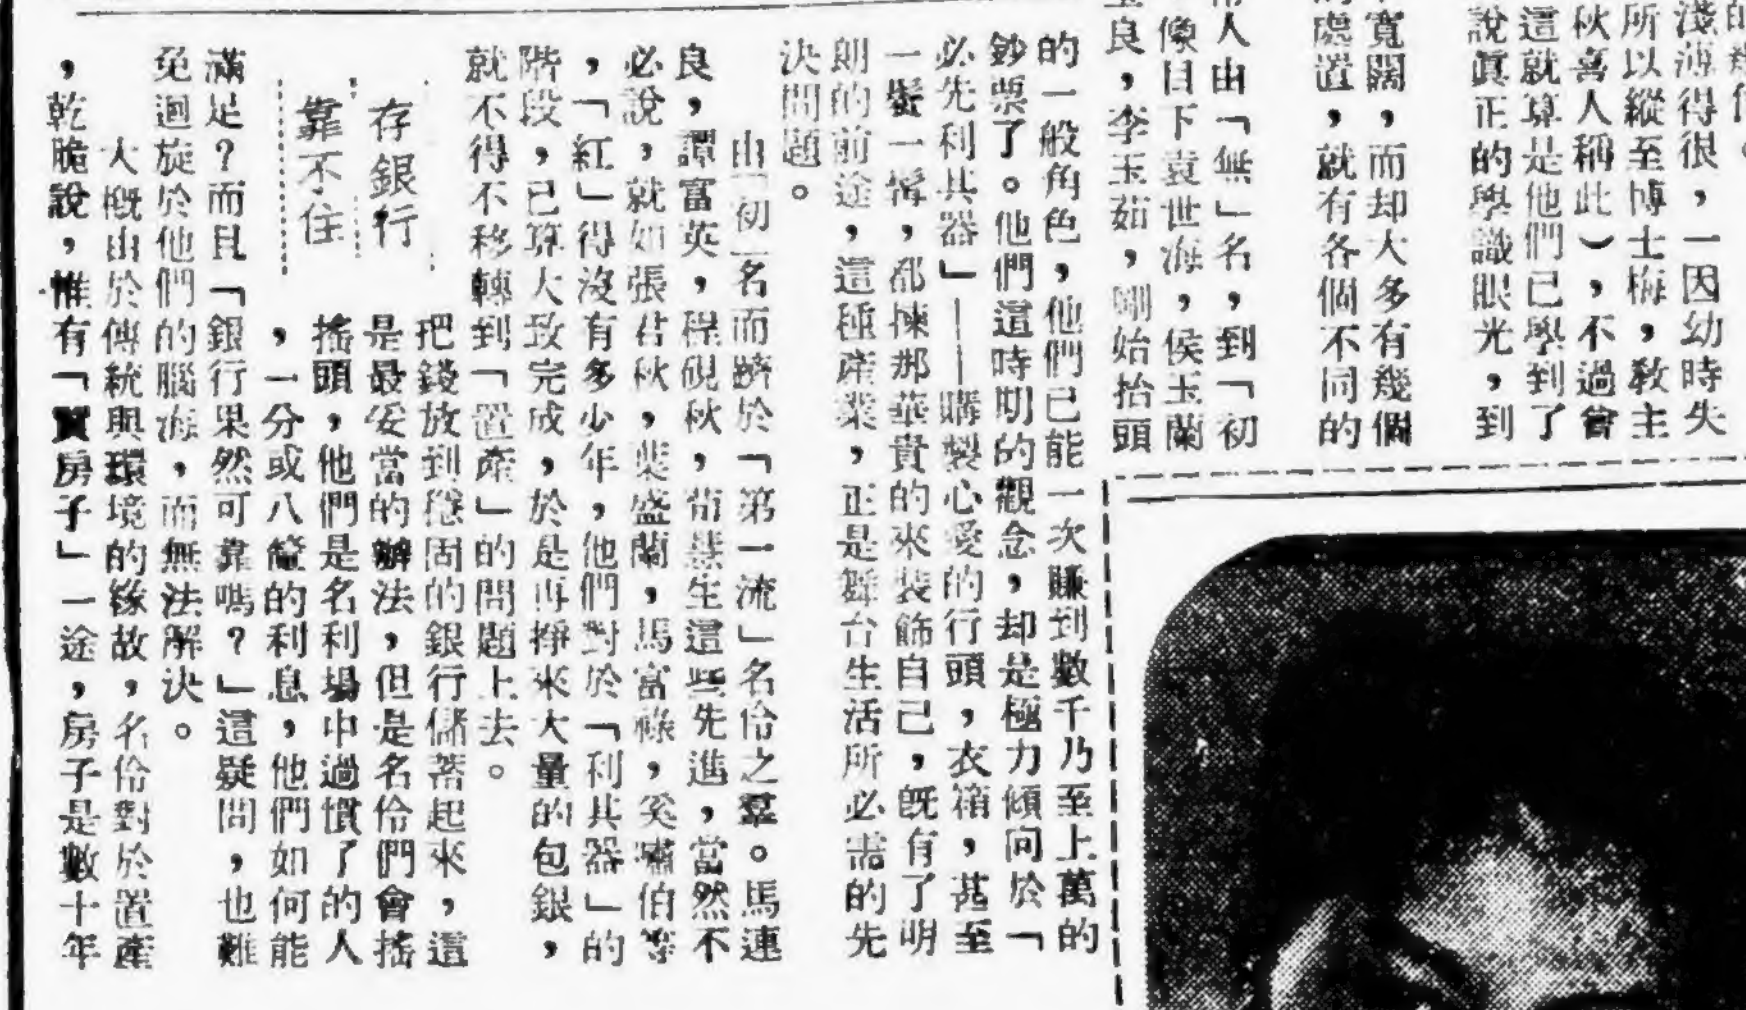 淺薄得很,一因幼時失
所以縱至博士梅,敎主
秋喜人稱此),不過曾
這就算是他們已學到了
說眞正的學識眼光,到
寬闊,而却大多有幾個
處置,就有各個不同的
人由「無」名,到「初
目下袁世海,侯玉蘭
良,李玉茹,剛始抬頭
的一般角色,他們已能一次賺到數千乃至上萬的
鈔票了。他們這時期的觀念,却是極力傾向於「
必先利其器」——購製心愛的行頭,衣箱,甚至
一髮一髯,都揀那華貴的來裝飾自己,旣有了明
朗的前途,這種產業,正是舞台生活所必需的先
決問題。
由「初」名而躋於「第一流」名伶之羣。馬連
良,譚富英,程硯秋,荀慧生這些先進,當然不
必說,就如張君秋,葉盛蘭,馬富祿,奚嘯伯等
,「紅」得沒有多少年,他們對於「利其器」的
階段,已算大致完成,於是再掙來大量的包銀,
就不得不移轉到「置產」的問題上去。
存銀行
靠不住
把錢放到穩固的銀行儲蓄起來,這
是最妥當的辦法,但是名伶們會搖
搖頭,他們是名利場中過慣了的人
,一分或八釐的利息,他們如何能
滿足?而且「銀行果然可靠嗎?」這疑問,也難
免迴旋於他們的腦海,而無法解決。
大槪由於傳統與環境的緣故,名伶對於置產
,乾脆說,惟有「買房子」一途,房子是數十年